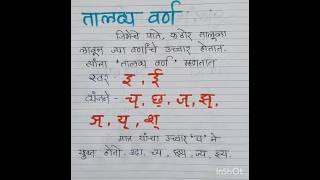 तालव्य वर्ण
जिभेचे पाते, कठोर तालूला
लावून ज्या वर्णांचे उच्चार होतात.
त्यांना 'तालव्य वर्ण' म्हणतात
स्वर इ, ई
व्यंजने - च्, छ्, ज्, झ्,
ञ्, य्, श्
मात्र यांचा उच्चार 'य' ने
युक्त होतो. उदा. च्य, छ्य, ज्य, झ्य.
InShOt